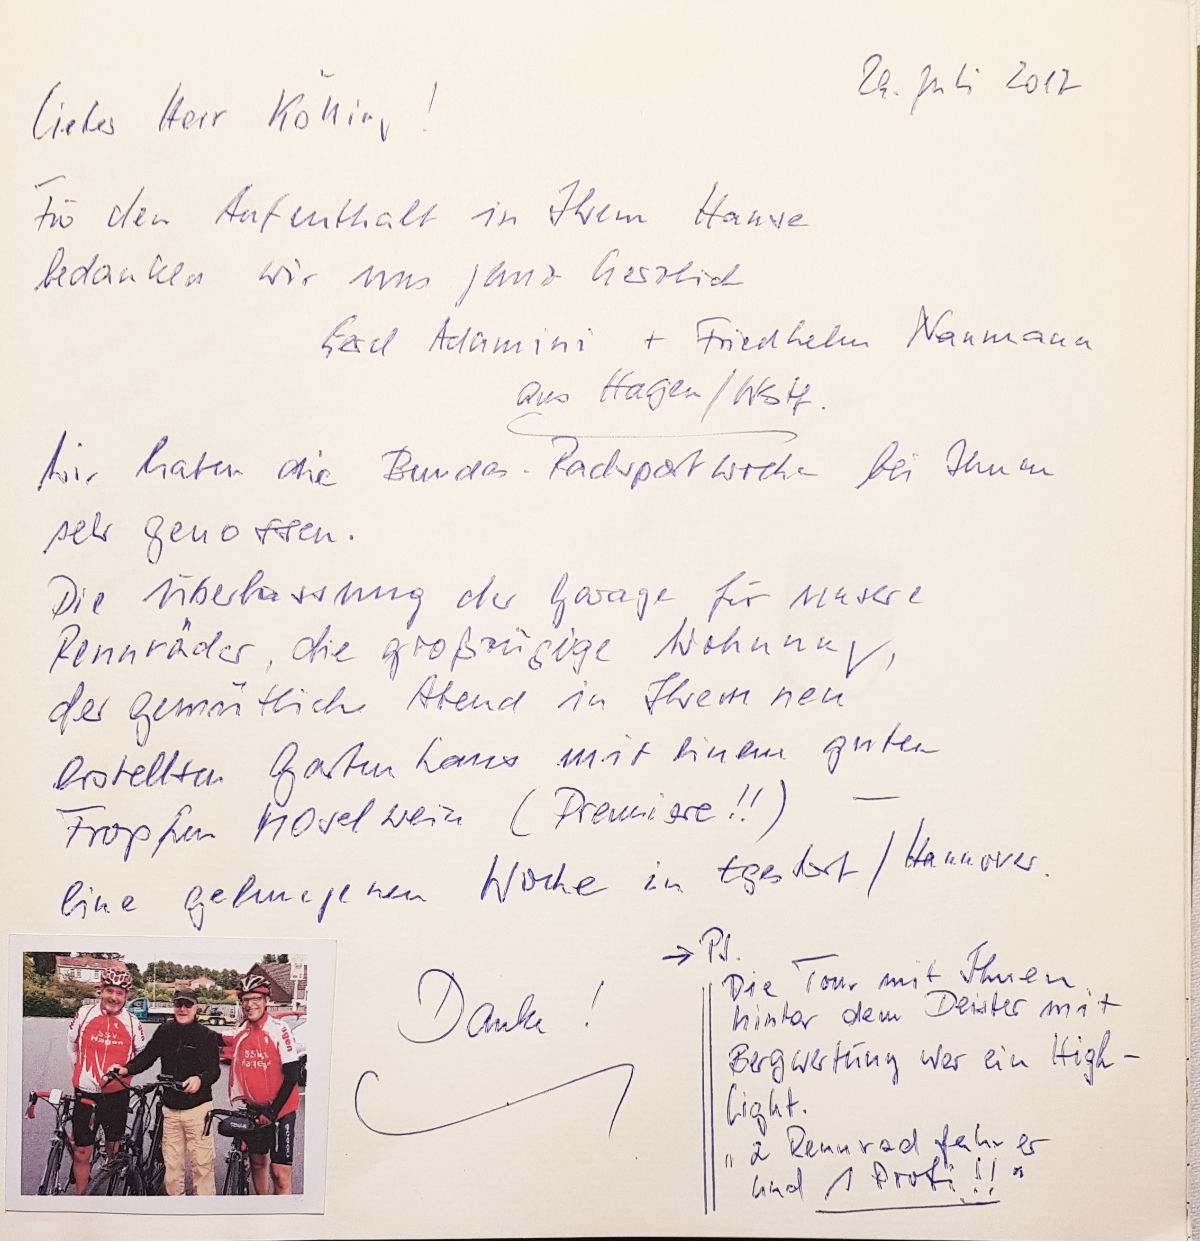 29. Juli 2017
Lieber Herr Kölling!
Für den Aufenthalt in Ihrem Hause
bedanken wir uns ganz herzlich
Gerd Adamini + Friedhelm Naumann
aus Hagen/Westf.
Wir haben die Bundes-Radsportwoche bei Ihnen
sehr genossen.
Die Überlassung der Garage für unsere
Rennräder, die großzügige Wohnung,
der gemütliche Abend in Ihrem neu
erstellten Gartenhaus mit einem guten
Tropfen Moselwein (Premiere!!) —
eine gelungenen Woche in Egestorf/Hannover.
→ PS.
Die Tour mit Ihnen
hinter dem Deister mit
Bergwertung war ein High-
light.
„2 Rennradfahrer
und 1 Profi!!"
Danke!
SSV
Hagen
SSV
Hagen